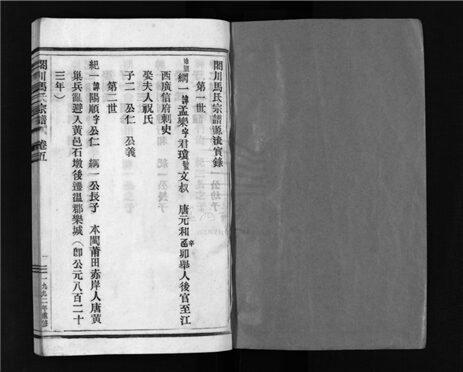 閣川馬氏宗譜源流實錄
第一世
綱一諱孟樂字君瓊號文叔 唐元和辛卯舉人後官至江
西廣信府刺史
娶夫人祝氏
子二 公仁 公義
第二世
紀一諱陽順字公仁 綱一公長子 本閩莆田赤岸人唐黃
巢兵亂避入黃邑石墩後遷溫郡樂城(即公元八百二十
三年)
閣川馬氏宗譜 卷首
一九九二年重修